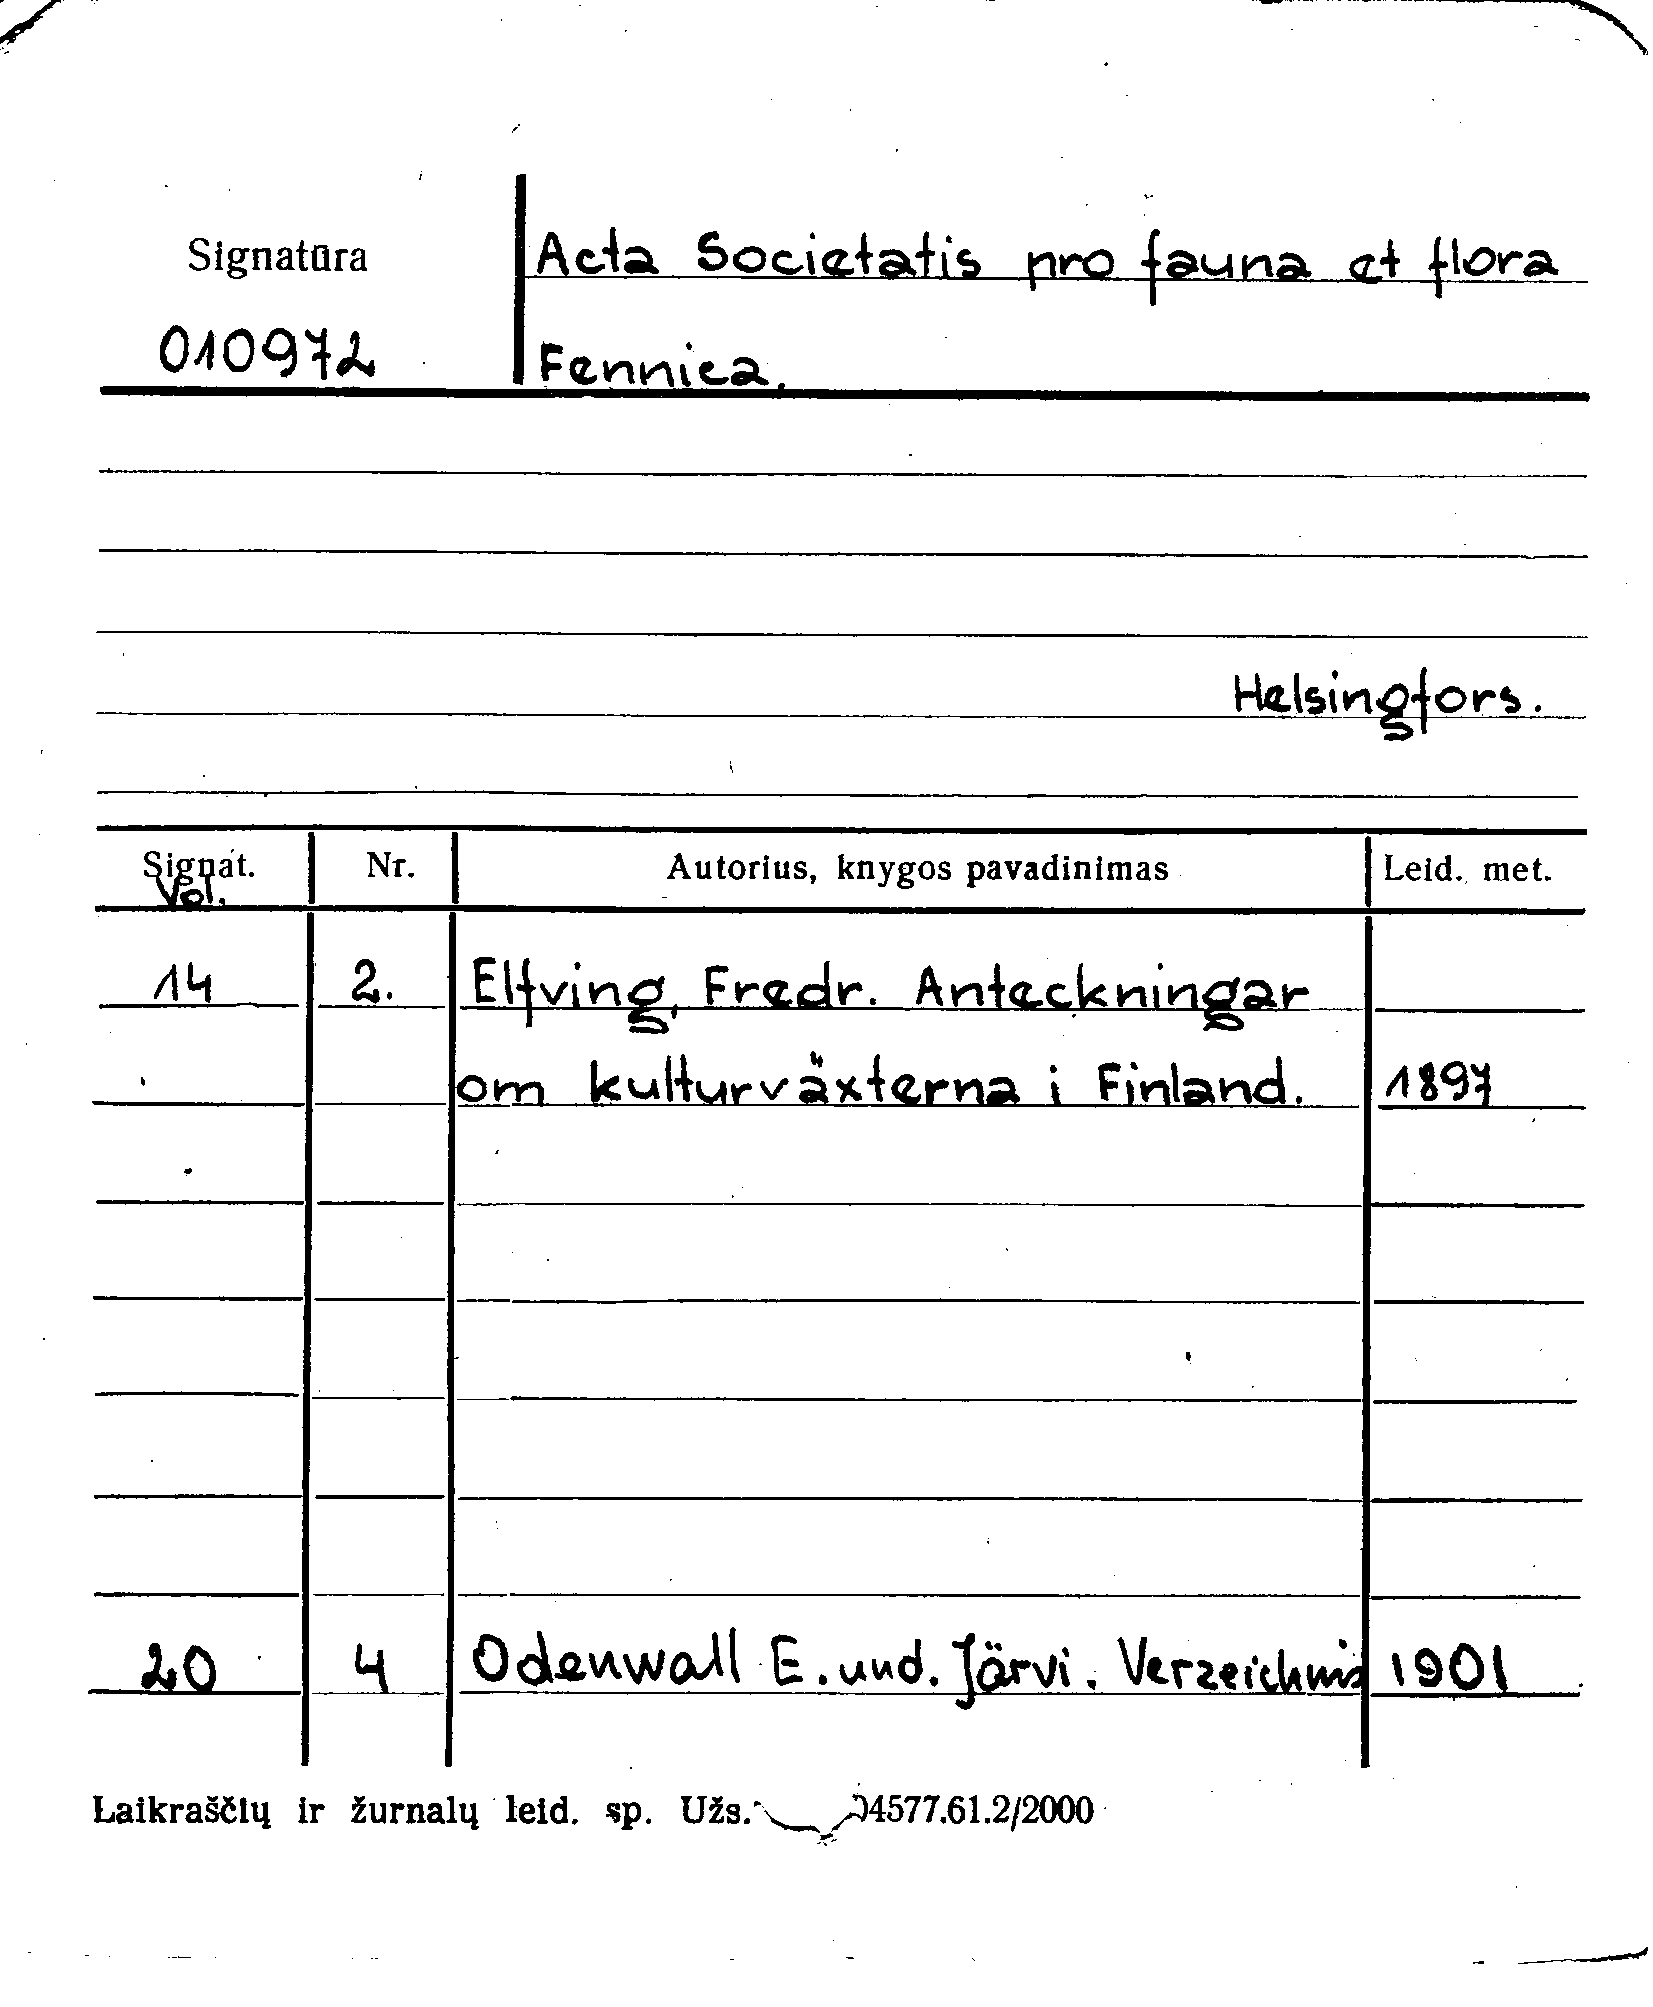 Signatūra
Acta Societatis pro fauna et flora
010972
Fennica.
Helsingfors.
Signat. Nr. Autorius, knygos pavadinimas Leid. met.
Vol.
14 2. Elfving, Fredr. Anteckningar
om kulturväxterna i Finland. 1897
20 4 Odenwall E. und. Järvi. Verzeichnis 1901
Laikraščių ir žurnalų leid. sp. Užs. 04577.61.2/2000